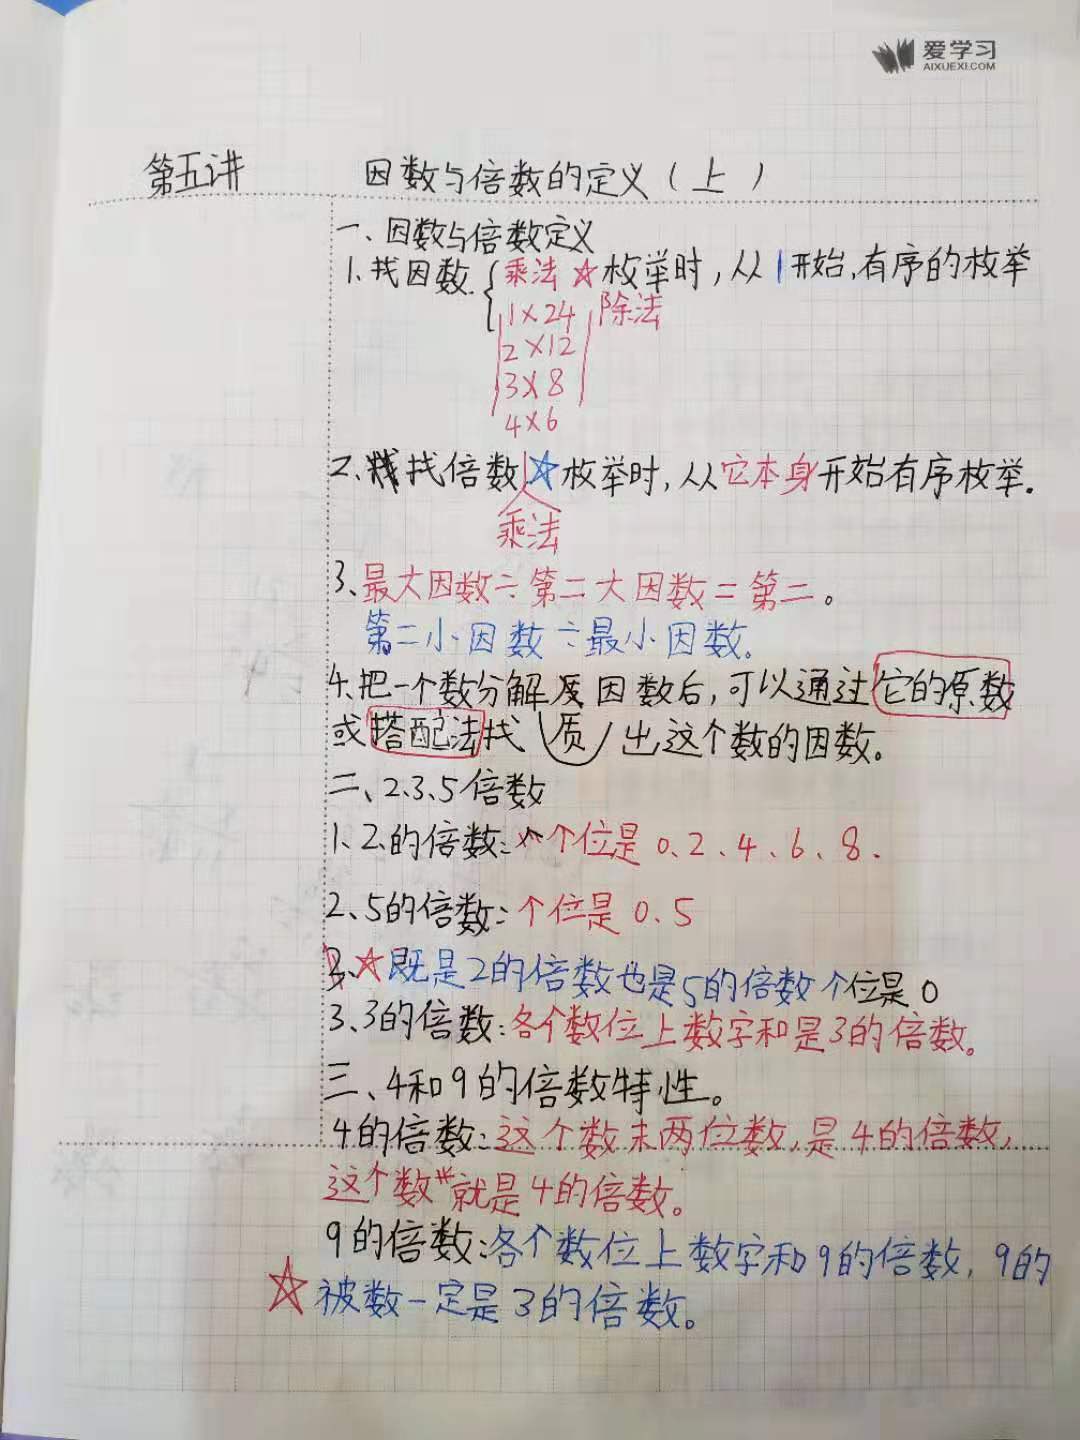 爱学习
AIXUEXI.COM
第五讲 因数与倍数的定义(上)
一、因数与倍数定义
1.找因数{乘法☆枚举时,从1开始,有序的枚举
1×24 除法
2×12
3×8
4×6
2、找倍数☆枚举时,从它本身开始有序枚举.
乘法
3、最大因数÷第二大因数=第二。
第二小因数÷最小因数。
4、把一个数分解质因数后,可以通过它的原数
或搭配法找出这个数的因数。
二、2.3.5倍数
1、2的倍数:个位是0、2、4、6、8.
2、5的倍数:个位是0.5
☆既是2的倍数也是5的倍数个位是0
3、3的倍数:各个数位上数字和是3的倍数。
三、4和9的倍数特性。
4的倍数:这个数末两位数,是4的倍数,
这个数就是4的倍数。
9的倍数:各个数位上数字和9的倍数,9的
☆被数一定是3的倍数。